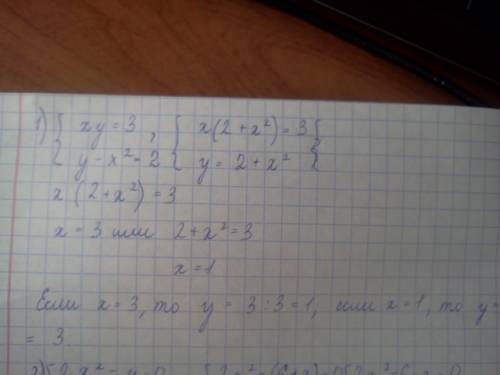 1) { xy = 3 , { x(2+x²) = 3 {
{ y - x² = 2 { y = 2 + x² {
x (2+x²) = 3
x = 3 или 2+x² = 3
x = 1
Если x = 3, то y = 3 : 3 = 1; или x = 1, то y =
= 3.